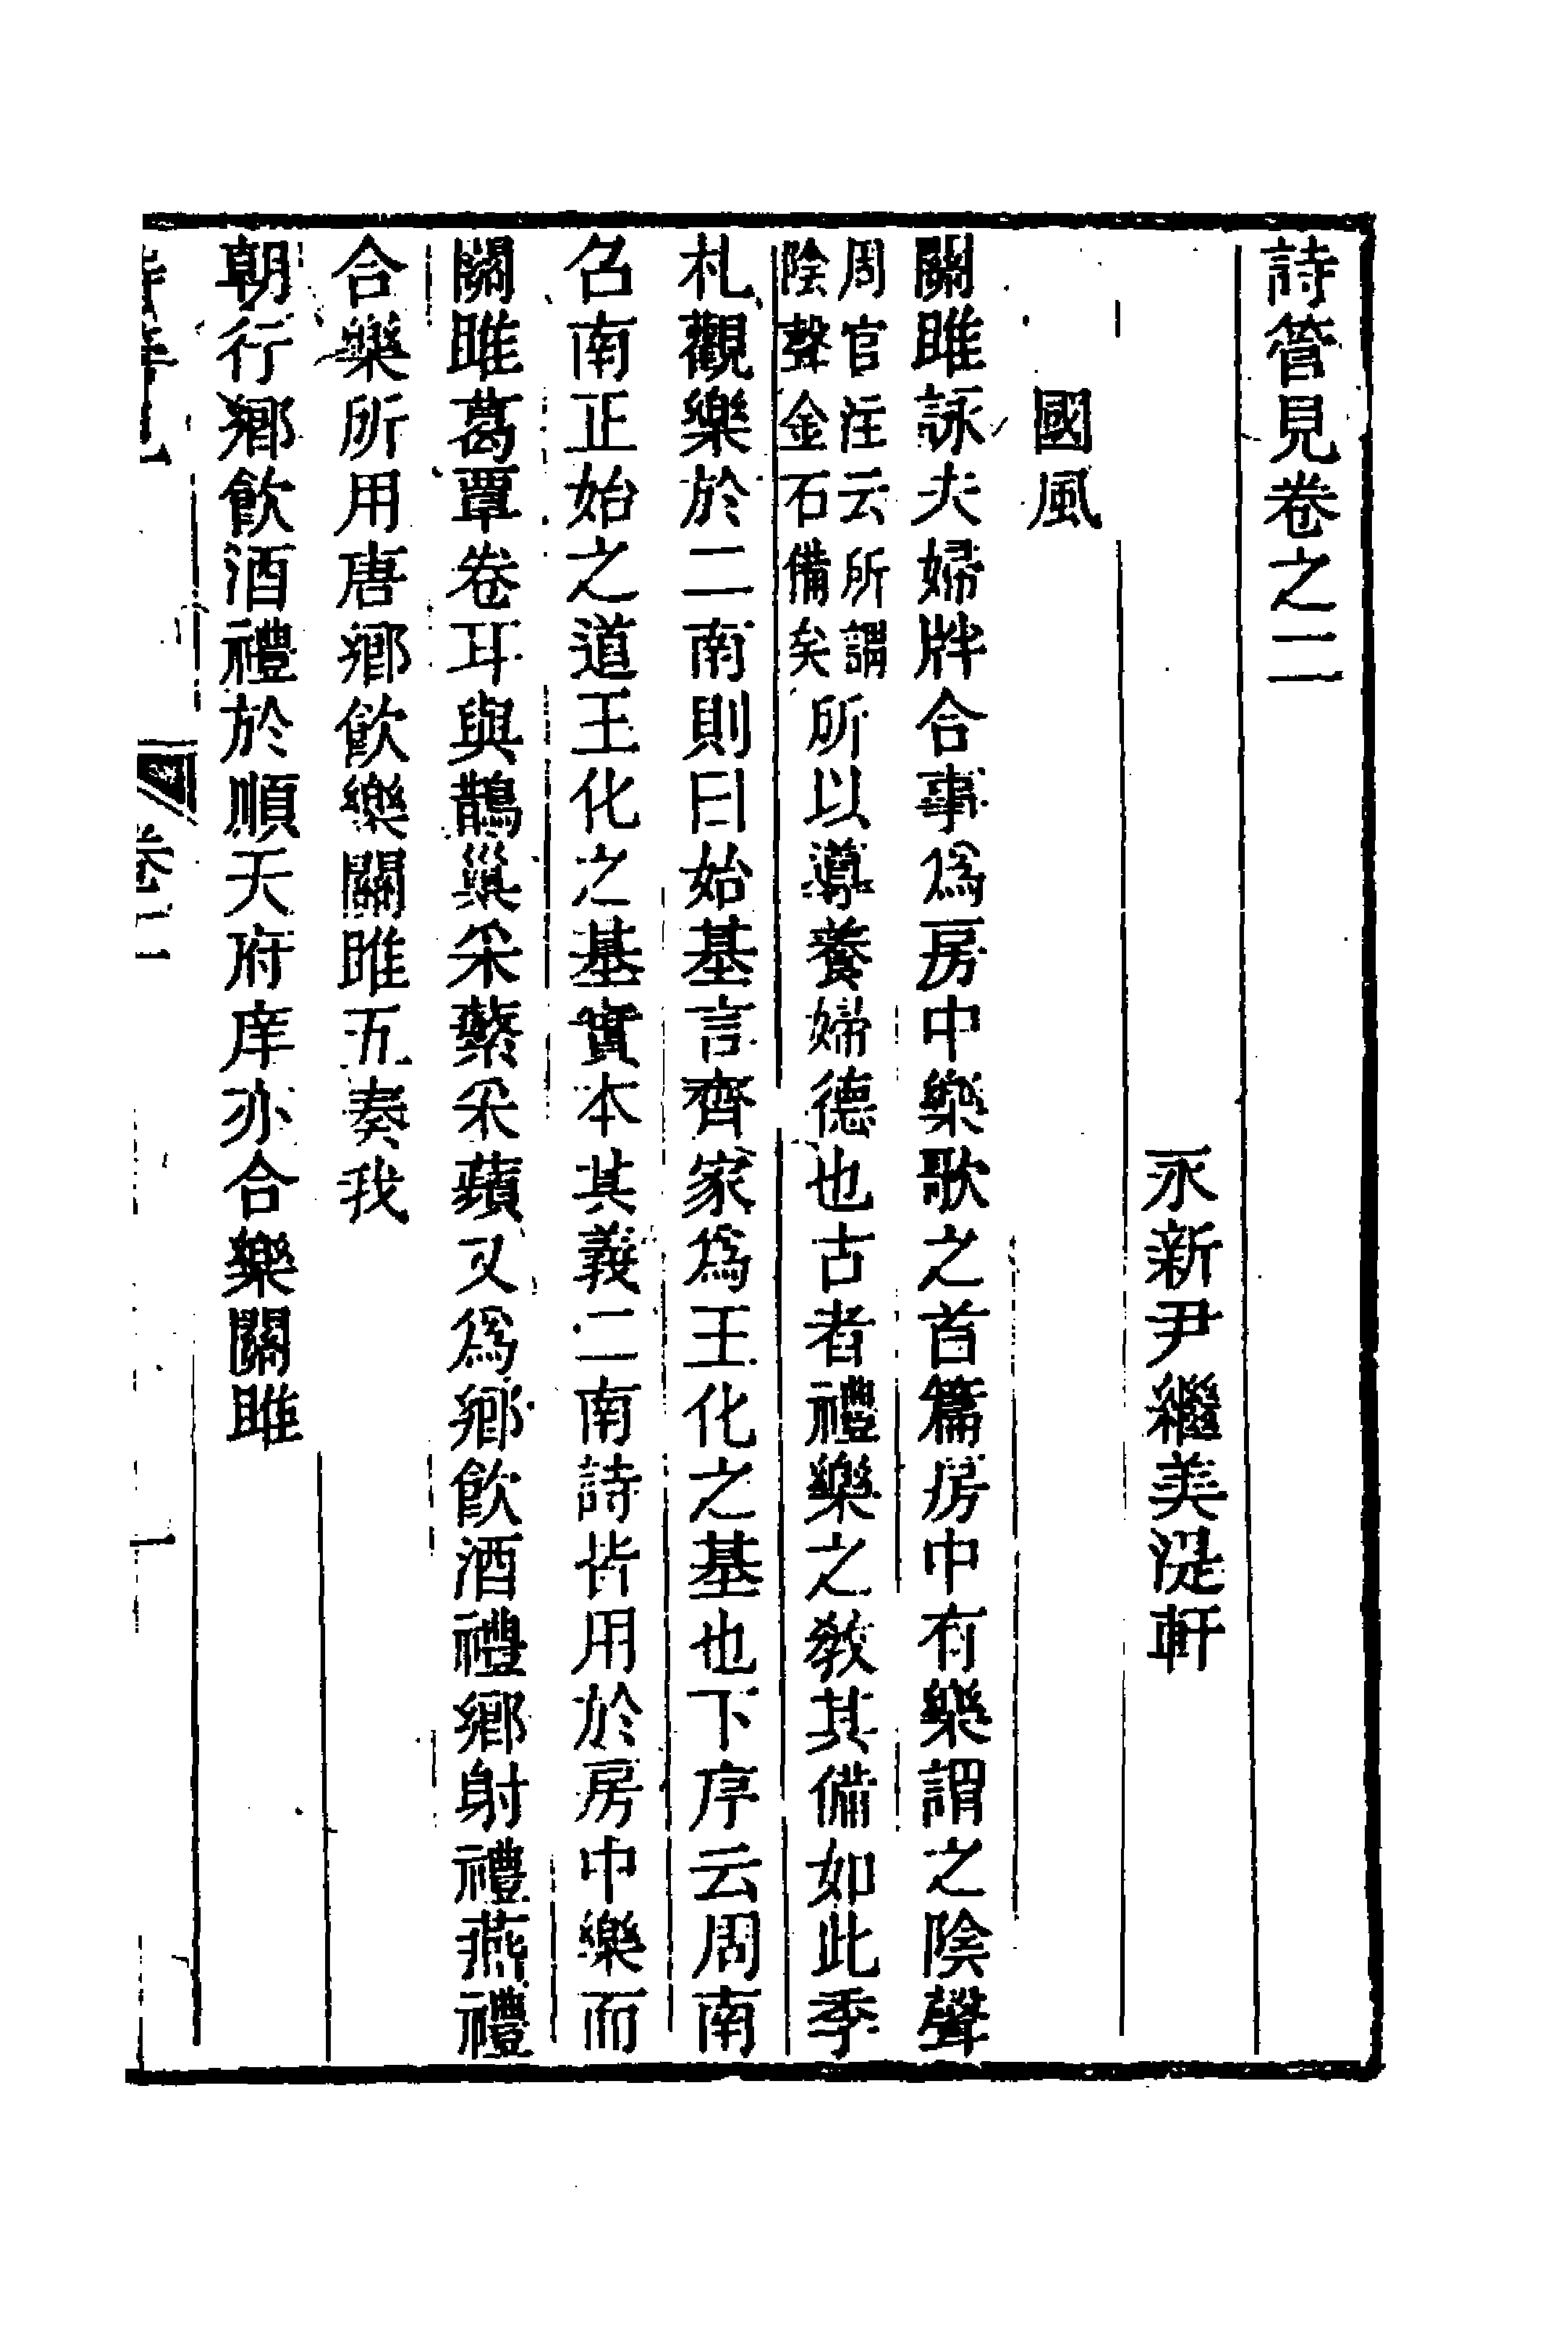 詩管見卷之二
永新尹繼美湜軒
國風
關雎詠夫婦牉合事爲房中樂歌之首篇房中有樂謂之陰聲
周官注云所謂
陰聲金石備矣
所以導養婦德也古者禮樂之敎其備如此季
札觀樂於二南則曰始基言齊家爲王化之基也下序云周南
召南正始之道王化之基實本其義二南詩皆用於房中樂而
關雎葛覃卷耳與鵲巢采蘩采蘋又爲鄉飲酒禮鄉射禮燕禮
合樂所用唐鄉飲樂關雎五奏我
朝行鄉飲酒禮於順天府庠亦合樂關雎
卷二
一